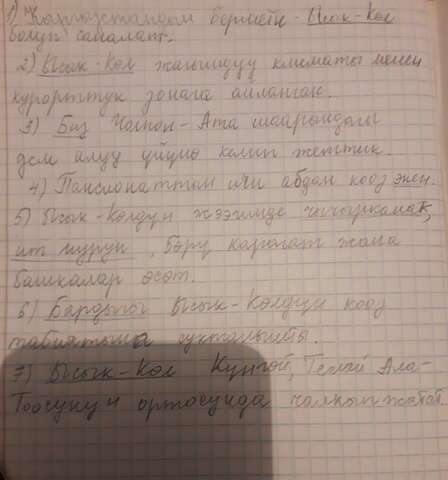 1) Кыргызстандын бермети - Ысык-Көл
болуп саналат.
2) Ысык-Көл жагымдуу климаты менен
курорттук зонага айланган.
3) Биз Чолпон-Ата шаарындагы
дем алуу үйүнө келип жеттик.
4) Пансионаттын ичи абдан кооз экен.
5) Ысык-Көлдүн жээгинде чычырканак,
ит мурун, бөрү карагат жана
башкалар өсөт.
6) Бардыгы Ысык-Көлдүн кооз
табиятына суктанышты.
7) Ысык-Көл Күнгөй, Тескей Ала-
Тоосунун ортосунда чалкып жатат.